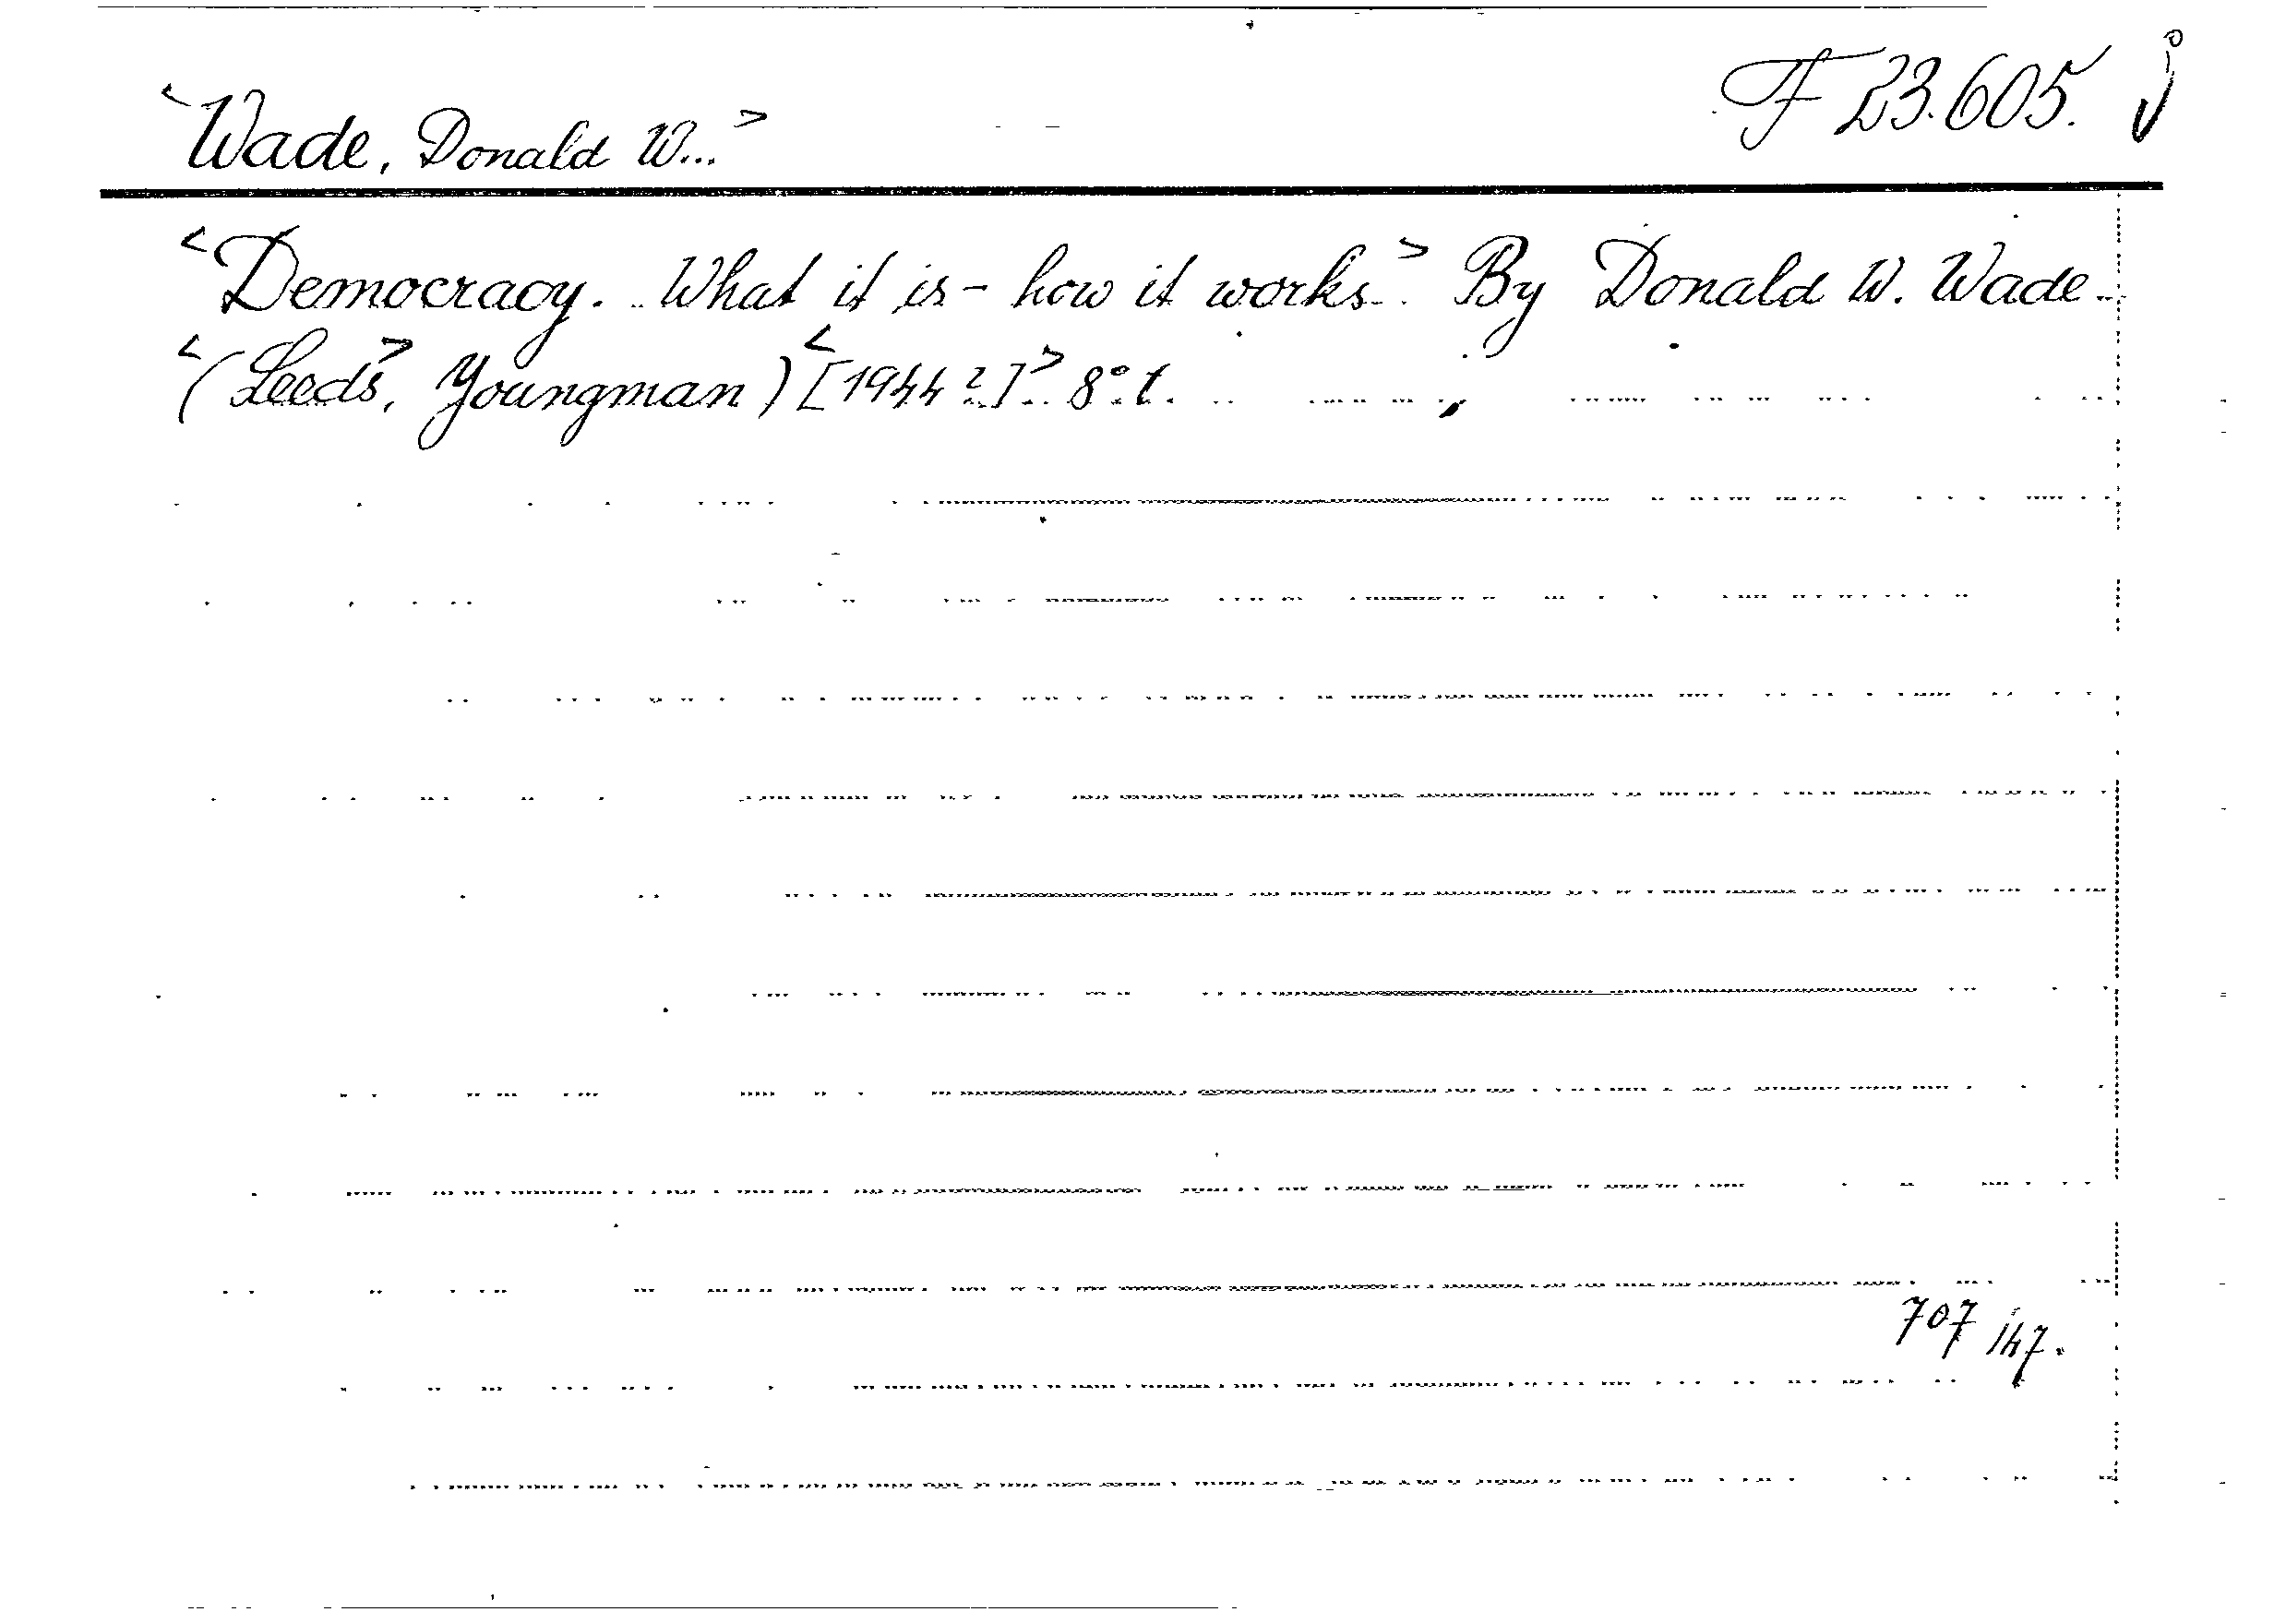 <Wade, Donald W...> F 23.605. j
<Democracy. What it is - how it works.> By Donald W. Wade.
<(Leeds>, Youngman) <[1944?]> 8° t.
707/47.